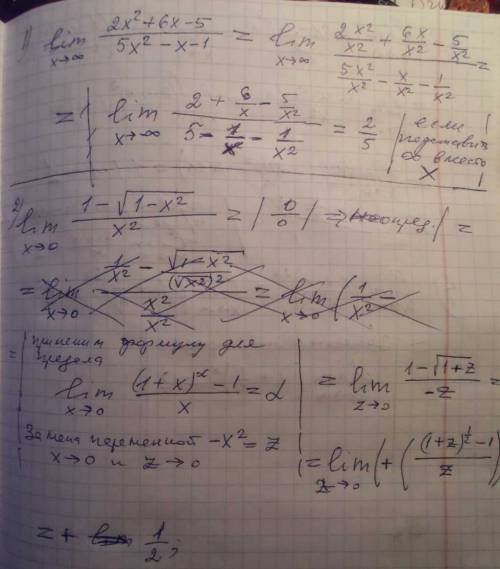 1) lim x→∞ (2x²+6x-5)/(5x²-x-1) = lim x→∞ (2x²/x² + 6x/x² - 5/x²)/(5x²/x² - x/x² - 1/x²) =
= | lim x→∞ (2 + 6/x - 5/x²)/(5 - 1/x - 1/x²) = 2/5 | если подставить ∞ вместо x |
2) lim x→0 (1-√(1-x²))/x² = |0/0| ⇒ неопред. | =
= lim x→0 (1/x² - √(1-x²)/(√x²)²)/(x²/x²) = lim x→0 (1/x² -
= | применим формулу для предела
lim x→0 ((1+x)^α - 1)/x = α | = lim z→0 (1-√(1+z))/(-z) =
Замена переменной -x² = z
x→0 и z→0 | = lim z→0 (+(((1+z)^(1/2) - 1)/z)
= + 1/2;